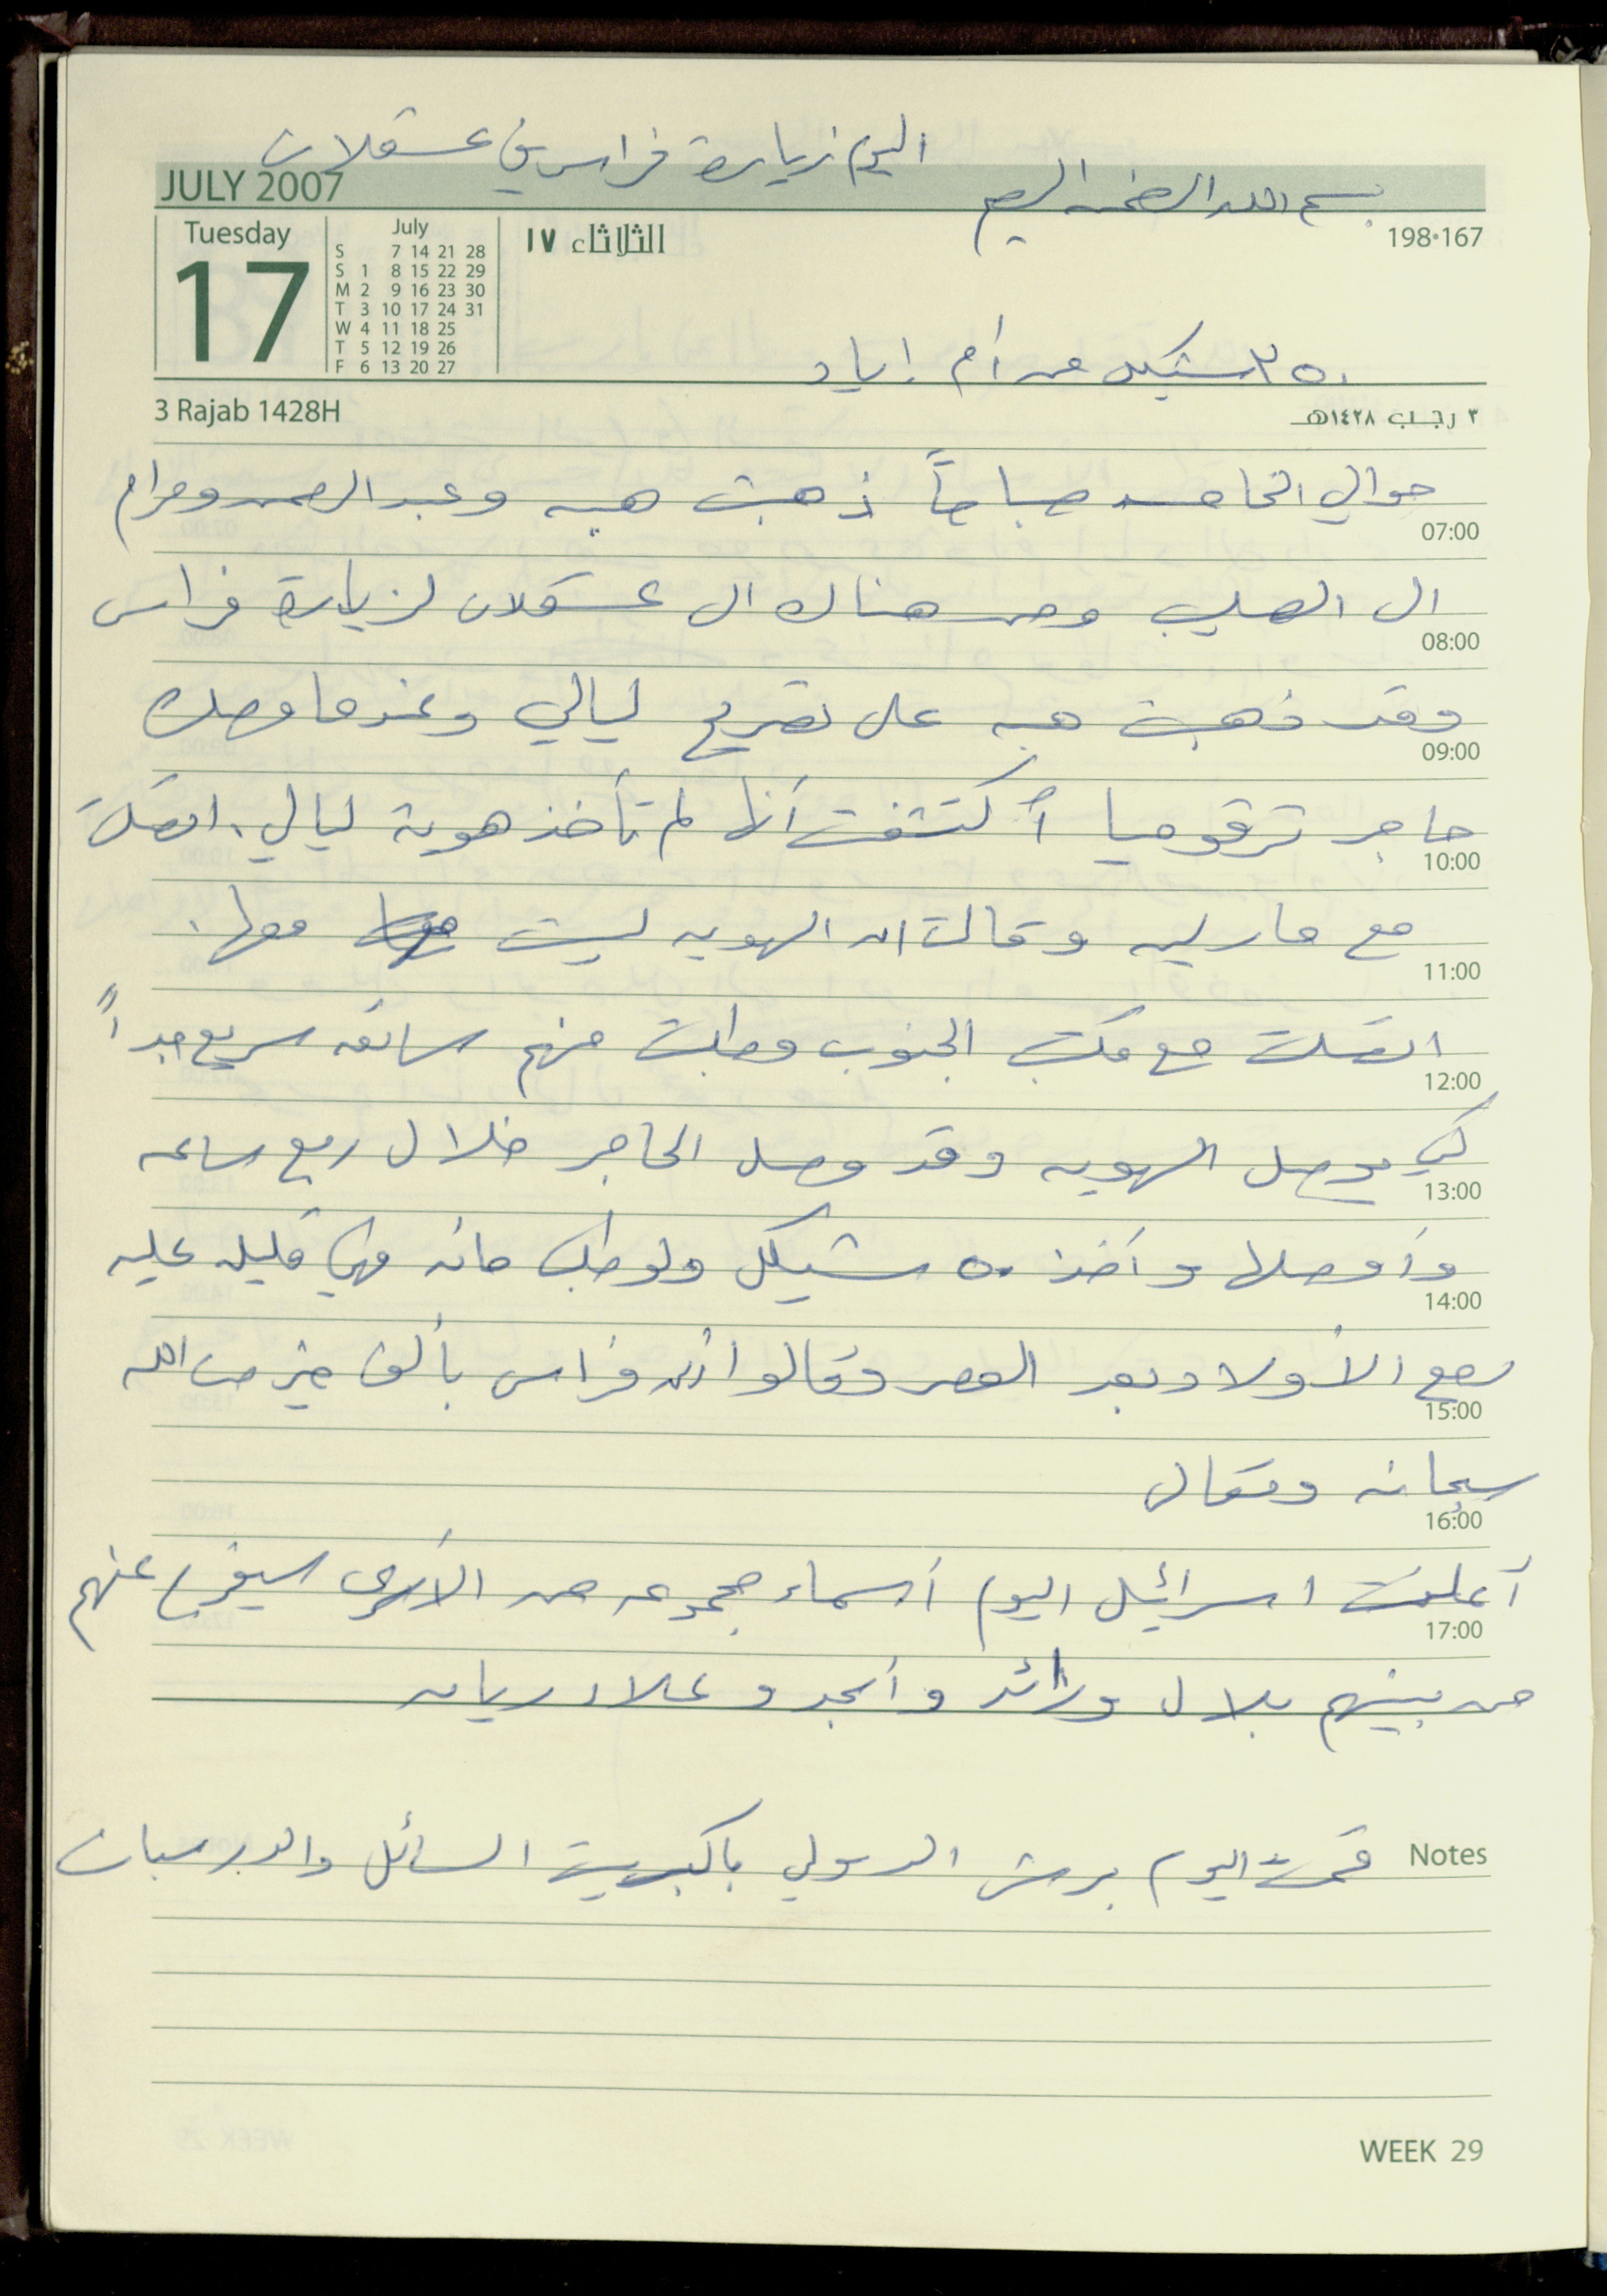 اليوم زيارة فراس في عسقلان
بسم الله الرحمن الرحيم
JULY 2007
Tuesday
17
July
S 7 14 21 28
S 1 8 15 22 29
M 2 9 16 23 30
T 3 10 17 24 31
W 4 11 18 25
T 5 12 19 26
F 6 13 20 27
الثلاثاء ١٧
198•167
شيكل من أم إياد
3 Rajab 1428H
٣ رجب ١٤٢٨هـ
حوالي الخامسه صباحاً ذهبت هبه وعبد الرحمن ومرام
07:00
الى الصليب ومن هناك الى عسقلان لزيارة فراس
08:00
وقد ذهبت هبه على تصريح ليالي وعندما وصلت
09:00
حاجر ترقوميا أكتشفت أنها لم تأخذ هوية ليالي. اتصلت
10:00
مع ماريه وقالت ان الهويه ليست معها.
11:00
اتصلت مع مكتب الجنوب وطلبت منهم سائق سريع جداً
12:00
لكي يوصل الهويه وقد وصل الحاجر خلال ربع ساعه
13:00
وأوصلها وأخذ ٥٠ شيكل ولو طلب مائه فهي قليله عليه
14:00
رجع الأولاد بعد العصر وقالوا ان فراس بألف خير من الله
15:00
سبحانه وتعالى
16:00
أعلنت اسرائيل اليوم أسماء مجموعه من الأسرى سيفرج عنهم
17:00
من بينهم بلال ورائد وأمجد وعلاء ريان
Notes
قمت اليوم برش الدوالي بالكبريت السائل والدورسبان
WEEK 29